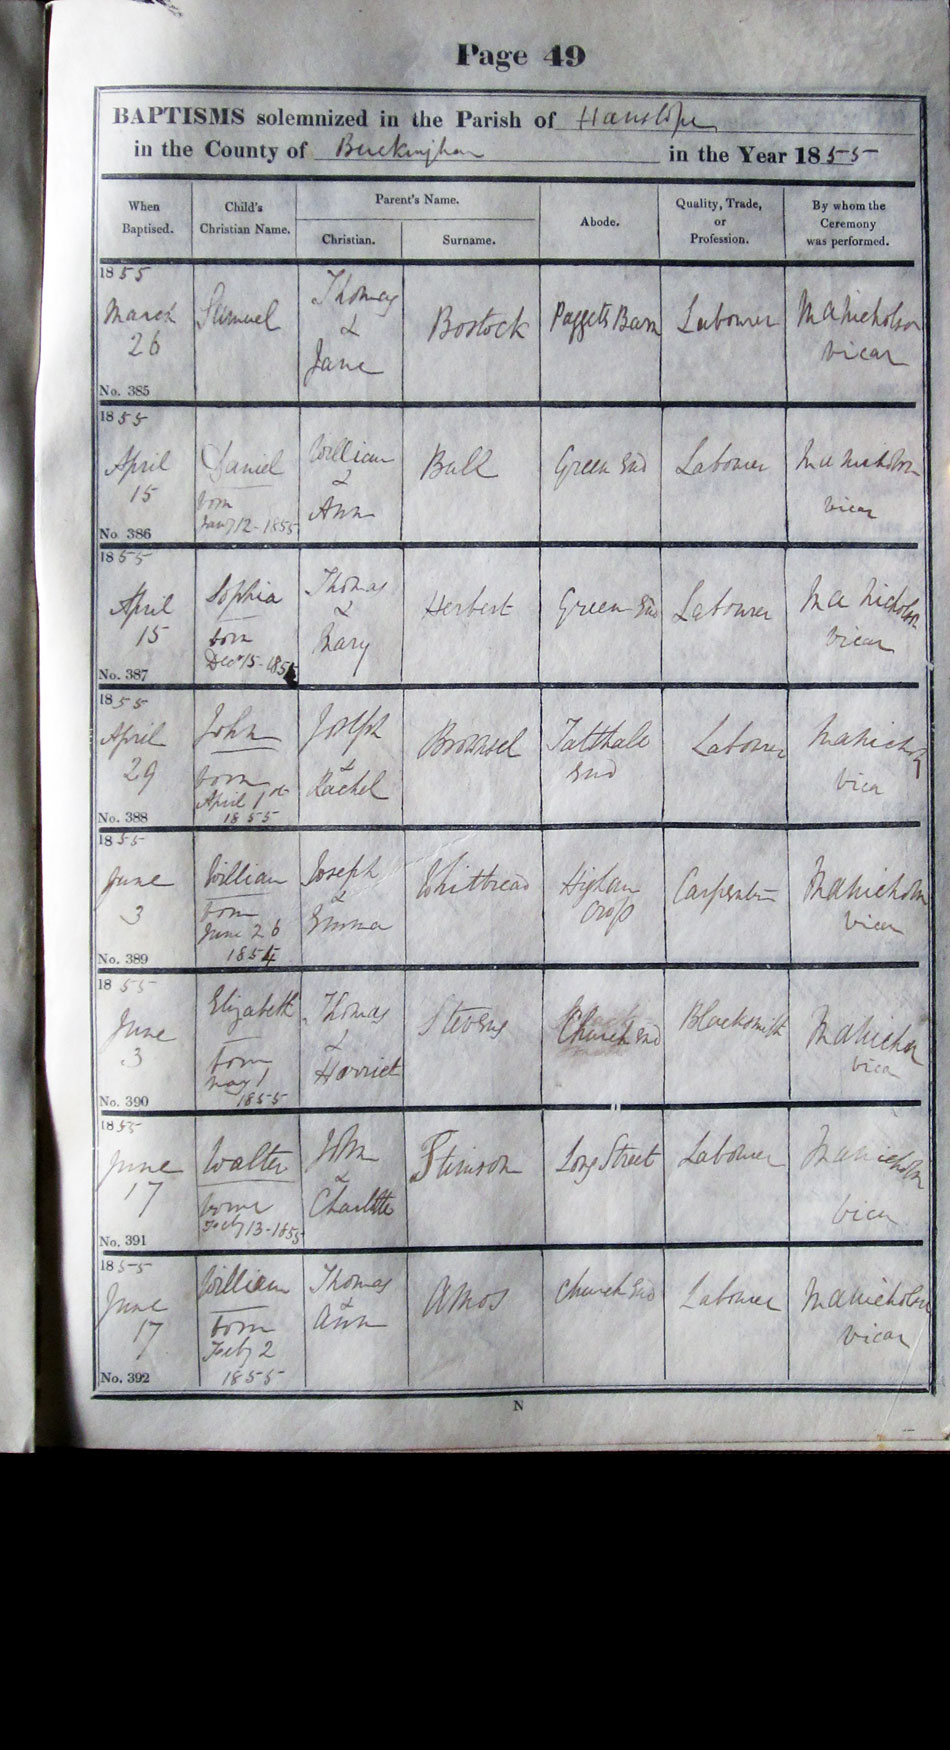 Page 49
BAPTISMS solemnized in the Parish of Hanslope
in the County of Buckingham in the Year 1855
When Baptised.
Child's Christian Name.
Parent's Name.
Christian.
Surname.
Abode.
Quality, Trade, or Profession.
By whom the Ceremony was performed.
1855
March
26
No. 385
Samuel
Thomas
&
Jane
Bostock
Paggets Barn
Labourer
M A Nicholson
Vicar
1855
April
15
No. 386
Daniel
born
Jany 12-1855
William
&
Ann
Bull
Green End
Labourer
M A Nicholson
Vicar
1855
April
15
No. 387
Sophia
born
Decr 15-185
Thomas
&
Mary
Herbert
Green End
Labourer
M A Nicholson
Vicar
1855
April
29
No. 388
John
born
April 1st
1855
Joseph
&
Rachel
Brownsel
Tatthale
End
Labourer
M A Nichols
Vicar
1855
June
3
No. 389
William
born
June 26
1854
Joseph
&
Emma
Whitbread
Higham
Cross
Carpenter
M A Nicholson
Vicar
1855
June
3
No. 390
Elizabeth
born
May 1
1855
Thomas
&
Harriet
Stevens
Church End
Blacksmith
M A Nichol
Vicar
1855
June
17
No. 391
Walter
born
Feby 13-1855
John
&
Charlotte
Stimson
Long Street
Labourer
M A Nicholson
Vicar
1855
June
17
No. 392
William
born
Feby 2
1855
Thomas
&
Ann
Amos
Church End
Labourer
M A Nicholson
Vicar
N